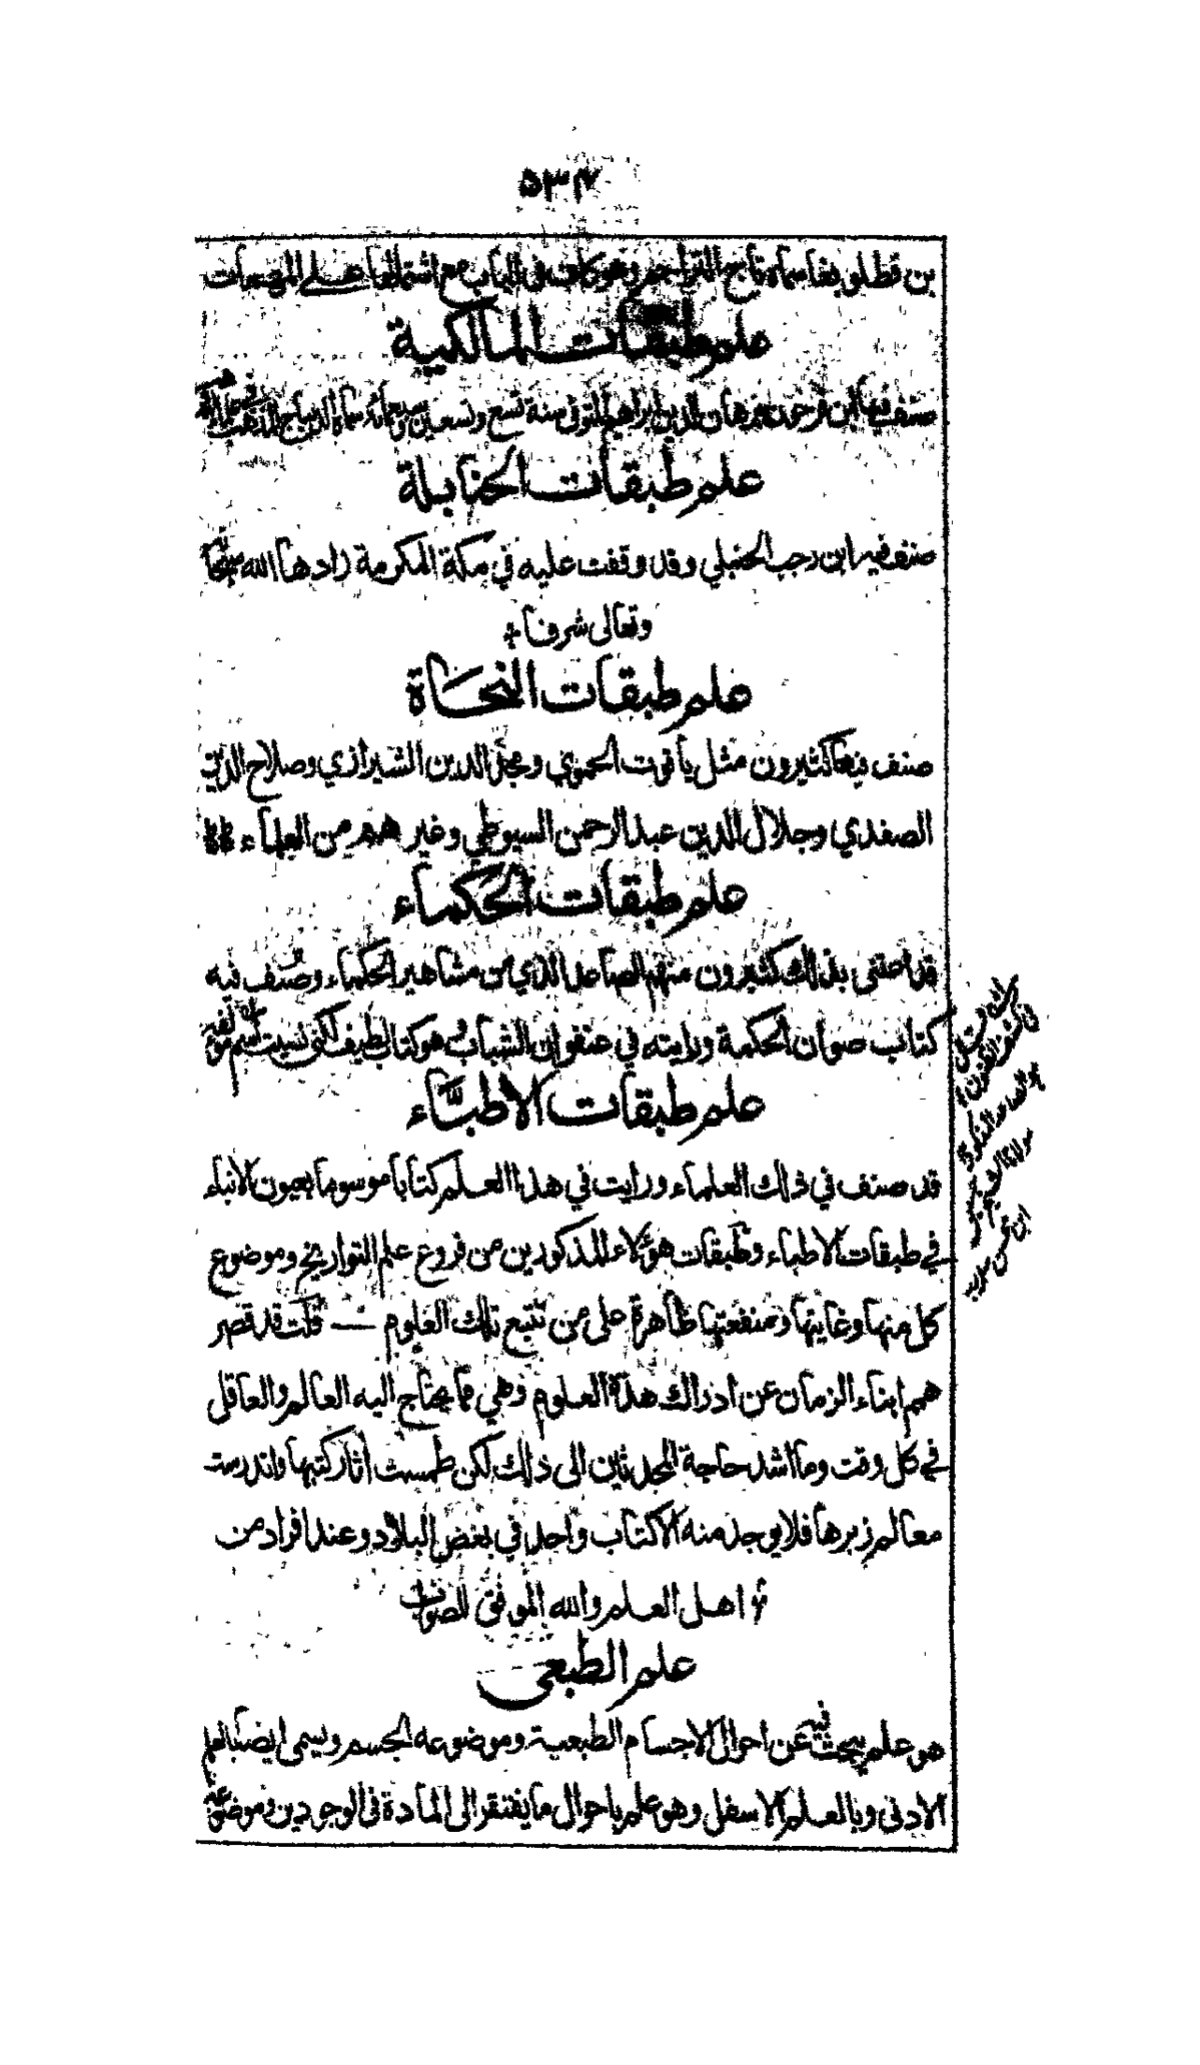 ٥٣٧
بن قطلوبغا سماه تاج التراجم وهو كاف فى الباب مع اشتمالها على المهمات
علم طبقات المالكية
صنف فيها ابن فرحون برهان الدين ابراهيم المتوفى سنة تسع وتسعين وسبعمائة سماه الديباج المذهب
علم طبقات الحنابلة
صنف فيه ابن رجب الحنبلي وقد وقفت عليه في مكة المكرمة زادها الله سبحانه
وتعالى شرفا
علم طبقات النحاة
صنف فيها كثيرون مثل ياقوت الحموي ومجد الدين الشيرازي وصلاح الدين
الصفدي وجلال الدين عبد الرحمن السيوطي وغيرهم من العلماء
علم طبقات الحكماء
قد اعتنى بذلك كثيرون منهم الصاعد الذي من مشاهير الحكماء وصنف فيه
كتاب صوان الحكمة ورايته في عنفوان الشباب هو كتاب لطيف لكنى نسيت اسم مؤلفه
علم طبقات الاطباء
قد صنف في ذلك العلماء ورايت في هذا العلم كتابا موسوما بعيون الانباء
في طبقات الاطباء وطبقات هؤلاء المذكورين من فروع علم التواريخ وموضوع
كل منها وغايتها ومنفعتها ظاهرة على من تتبع تلك العلوم — قلت قد قصر
همم ابناء الزمان عن ادراك هذه العلوم وهي مما يحتاج اليه العالم والعاقل
في كل وقت وما اشد حاجة المحدثين الى ذلك لكن طمست اثار كتبها واندرست
معالم زبرها فلا يوجد منه الا كتاب واحد في بعض البلاد وعند افراد من
اهل العلم والله الموفق للصواب
علم الطبعى
هو علم يبحث فيه عن احوال الاجسام الطبعية وموضوعه الجسم ويسمى ايضا بالعلم
الادنى وبالعلم الاسفل وهو علم باحوال ما يفتقر الى المادة فى الوجودين وموضوعه